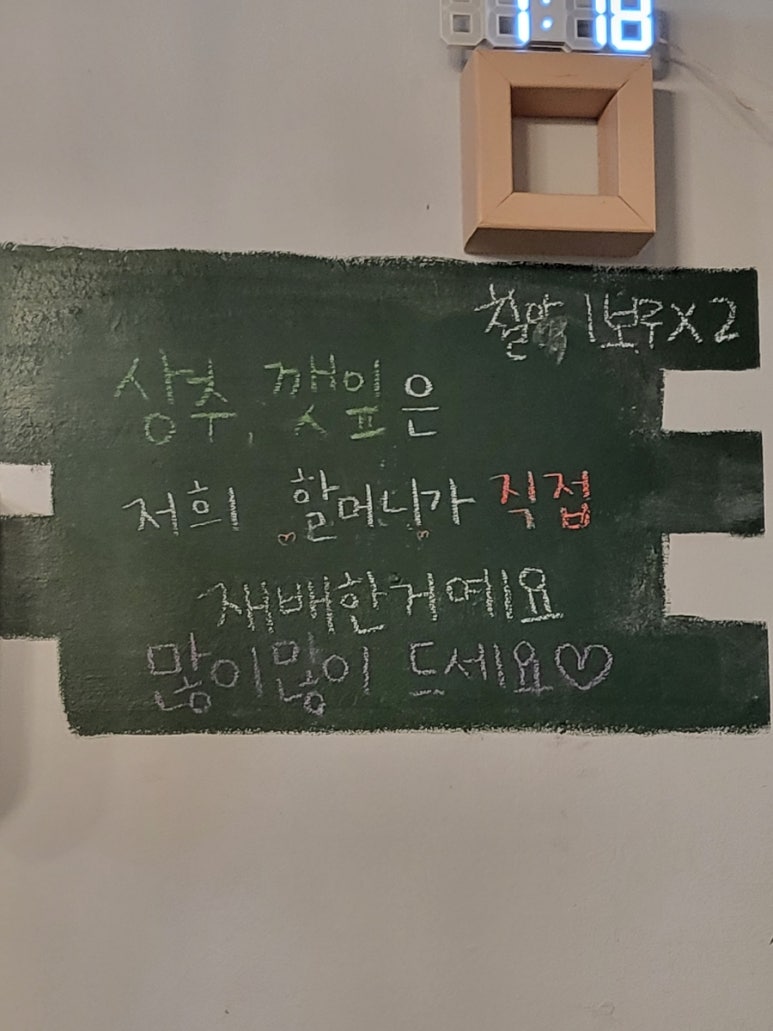 1:18
1보루X2
상추, 깻잎은
저희 할머니가 직접
재배한거예요
많이많이 드세요♡